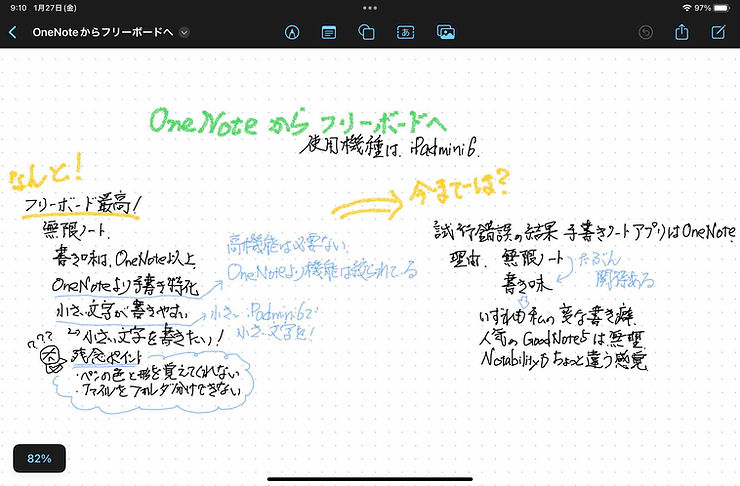 9:10 1月27日(金)
97%
OneNoteからフリーボードへ
あ
OneNoteからフリーボードへ
使用機種は、iPadmini6.
なんと!
フリーボード最高!
無限ノート.
書き味は、OneNote以上.
OneNoteより手書き特化
小さい文字が書きやすい
→小さい文字を書きたい!
???
残念ポイント
・ペンの色と形を覚えてくれない
・ファイルをフォルダ分けできない
高機能は必要ない.
OneNoteより機能は絞られている
小さいiPadmini6で
小さい文字を!
今までは?
試行錯誤の結果 手書きノートアプリはOneNote.
理由. 無限ノート
書き味
たぶん
関係ある
いずれも私の変な書き癖.
人気のGoodNote5は無理.
Notabilityもちょっと違う感覚
82%